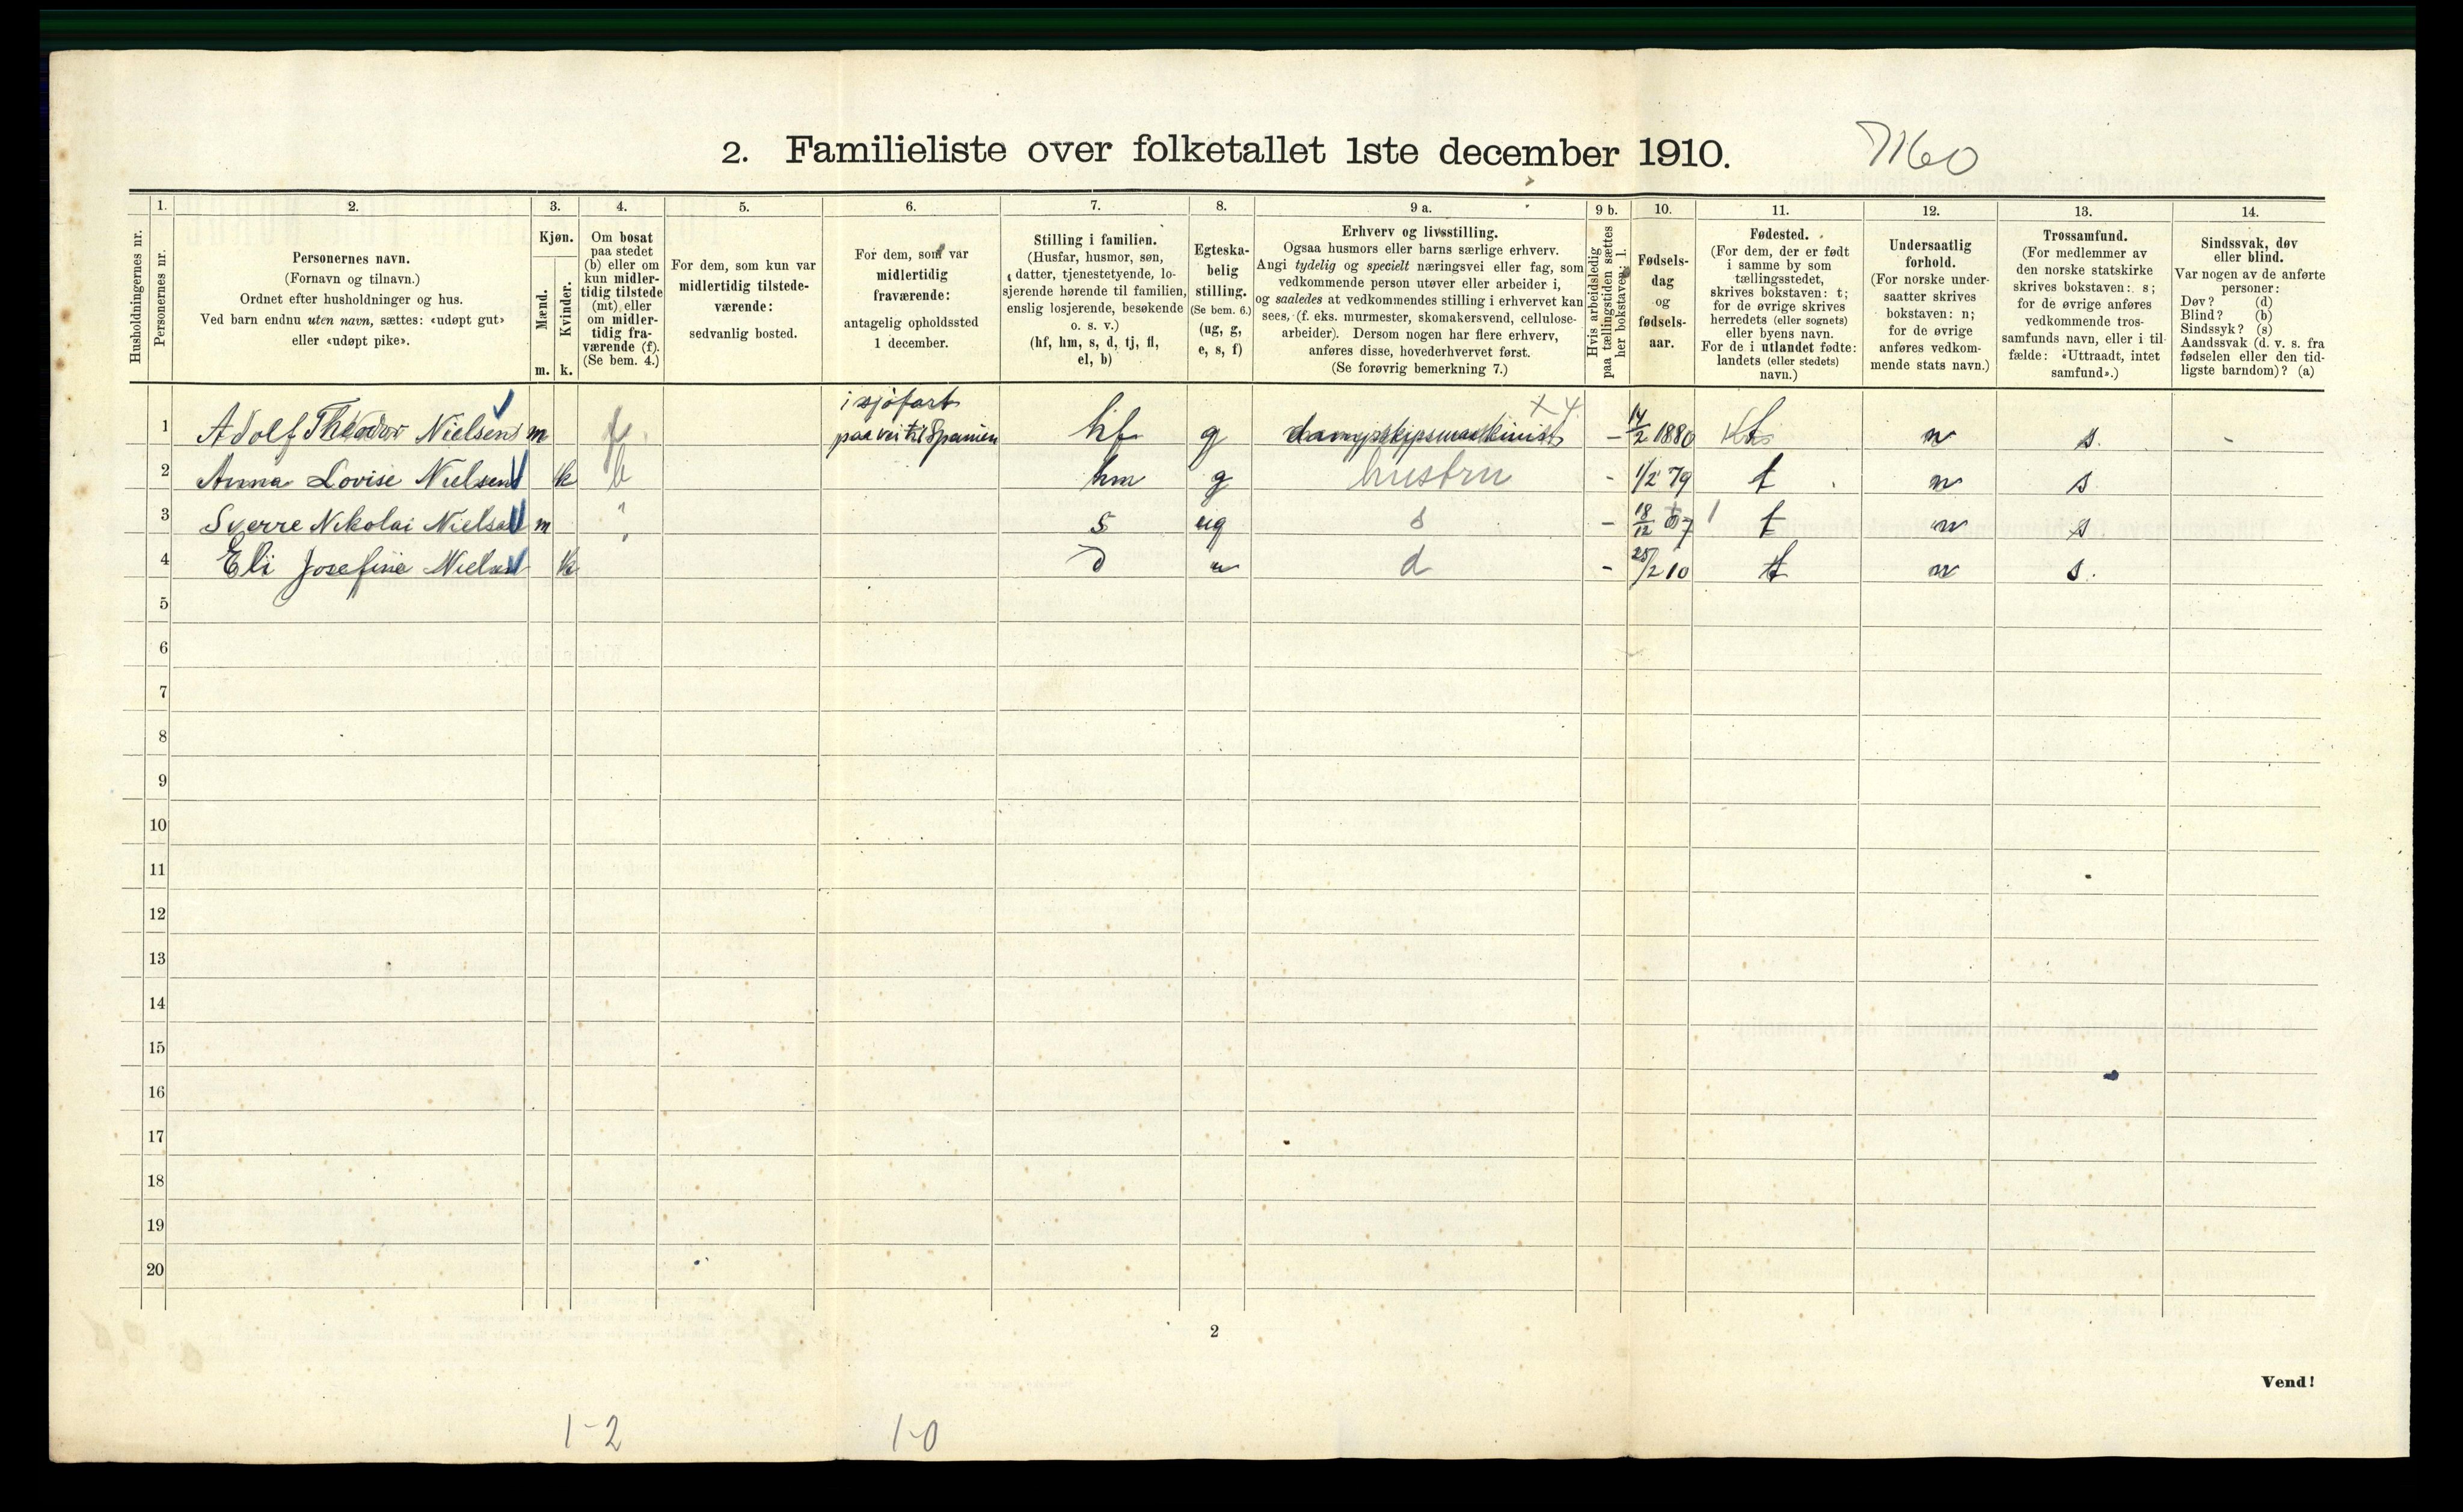 2. Familieliste over folketallet 1ste december 1910.
7160
Husholdningernes nr.
1.
Personernes nr.
2.
Personernes navn.
(Fornavn og tilnavn.)
Ordnet efter husholdninger og hus.
Ved barn endnu uten navn, sættes: «udøpt gut»
eller «udøpt pike».
3.
Kjøn.
Mænd.
Kvinder.
m. k.
4.
Om bosat
paa stedet
(b) eller om
kun midler-
tidig tilstede
(mt) eller
om midler-
tidig fra-
værende (f).
(Se bem. 4.)
5.
For dem, som kun var
midlertidig tilstede-
værende:
sedvanlig bosted.
6.
For dem, som var
midlertidig
fraværende:
antagelig opholdssted
1 december.
7.
Stilling i familien.
(Husfar, husmor, søn,
datter, tjenestetyende, lo-
sjerende hørende til familien,
enslig losjerende, besøkende
o. s. v.)
(hf, hm, s, d, tj, fl,
el, b)
8.
Egteska-
belig
stilling.
(Se bem. 6.)
(ug, g,
e, s, f)
9 a.
Erhverv og livsstilling.
Ogsaa husmors eller barns særlige erhverv.
Angi tydelig og specielt næringsvei eller fag, som
vedkommende person utøver eller arbeider i,
og saaledes at vedkommendes stilling i erhvervet kan
sees, (f. eks. murmester, skomakersvend, cellulose-
arbeider). Dersom nogen har flere erhverv,
anføres disse, hovederhvervet først.
(Se forøvrig bemerkning 7.)
9 b.
Hvis arbeidsledig
paa tællingstiden sættes
her bokstaven: l.
10.
Fødsels-
dag
og
fødsels-
aar.
11.
Fødested.
(For dem, der er født
i samme by som
tællingsstedet,
skrives bokstaven: t;
for de øvrige skrives
herredets (eller sognets)
eller byens navn.
For de i utlandet fødte:
landets (eller stedets)
navn.)
12.
Undersaatlig
forhold.
(For norske under-
saatter skrives
bokstaven: n;
for de øvrige
anføres vedkom-
mende stats navn.)
13.
Trossamfund.
(For medlemmer av
den norske statskirke
skrives bokstaven: s;
for de øvrige anføres
vedkommende tros-
samfunds navn, eller i til-
fælde: «Uttraadt, intet
samfund».)
14.
Sindssvak, døv
eller blind.
Var nogen av de anførte
personer:
Døv? (d)
Blind? (b)
Sindssyk? (s)
Aandssvak (d. v. s. fra
fødselen eller den tid-
ligste barndom)? (a)
i sjøfart x 4
1 Adolf Theodor Nielsen m f paa vei til Spanien hf g dampskipsmaskinist - 14/2 1880 n s. -
2 Anna Lovise Nielsen k b hm g hustru - 1/2 79 t n s
3 Sverre Nikolai Nielsen m " s ug s - 18/12 07 t n s
4 Eli Josefine Nielsen k " d " d - 25/2 10 t n s.
5
6
7
8
9
10
11
12
13
14
15
16
17
18
19
20
2
Vend!
1-2 1-0